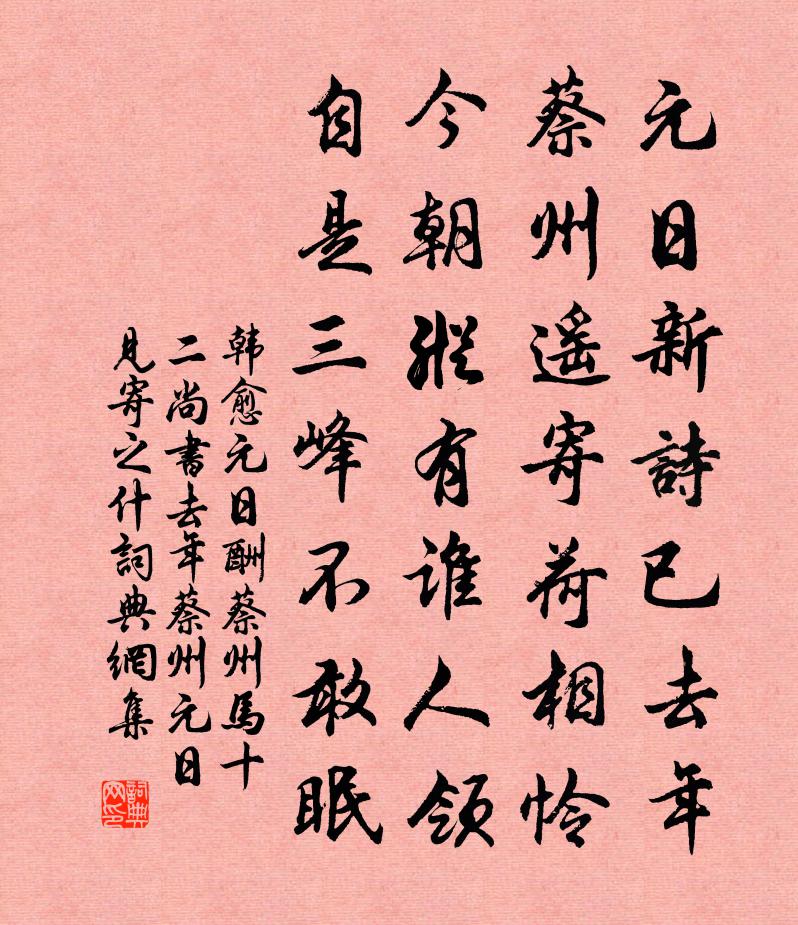 元日新詩已去年
蔡州遥寄荷相怜
今朝縱有谁人領
自是三峰不敢眠
韩愈元日酬蔡州馬十
二尚書去年蔡州元日
見寄之什詞典網集
詞典
网印